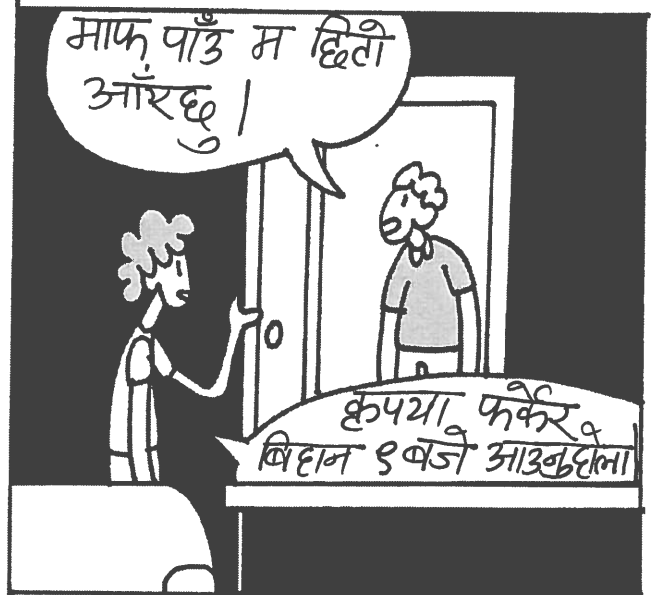 माफ् पाउँ म छिटो
आँएछु।
कृपया फर्केर
बिहान ९ बजे आउनुहोला